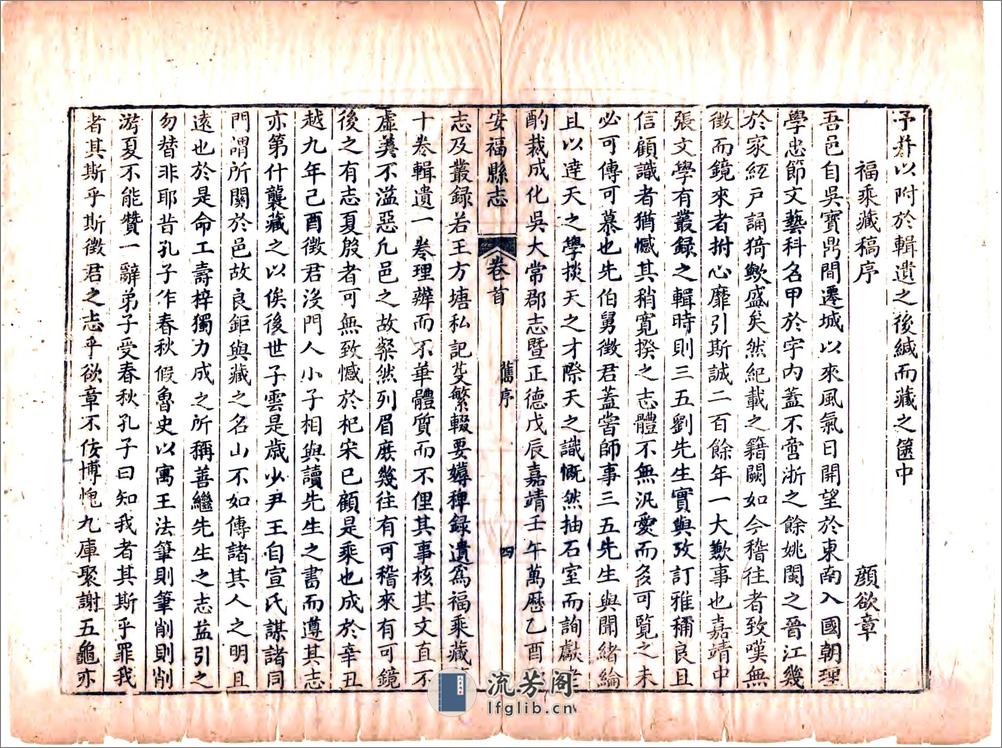 予并以附於輯遺之後緘而藏之篋中
福乘藏稿序 顏欲章
吾邑自吳寶鼎間遷城以來風氣日開望於東南入國朝理
學忠節文藝科名甲於宇內蓋不啻浙之餘姚閩之晉江幾
於家絃戶誦猗歟盛矣然紀載之籍闕如今稽往者致嘆無
徵而鏡來者拊心靡引斯誠二百餘年一大歎事也嘉靖中
張文學有叢錄之輯時則三五劉先生實與攷訂雅稱良且
信顧識者猶憾其稍寬揆之志體不無汎愛而多可覽之未
必可傳可慕也先伯舅徵君蓋嘗師事三五先生與聞緒論
且以達天之學掞天之才際天之識慨然抽石室而詢獻
酌裁成化吳大常郡志暨正德戊辰嘉靖壬午萬歷乙酉
安福縣志 卷首 舊序 四
志及叢錄若王方塘私記芟繁輟要嫥稗錄遺爲福乘藏
十卷輯遺一卷理辦而不華體質而不俚其事核其文直不
虛美不溢惡凡邑之故粲然列眉庶幾往有可稽來有可鏡
後之有志夏殷者可無致憾於杞宋已顧是乘也成於辛丑
越九年己酉徵君沒門人小子相與讀先生之書而遵其志
亦第什襲藏之以俟後世子雲是歲少尹王自宣氏謀諸同
門謂所關於邑故良鉅與藏之名山不如傳諸其人之明且
遠也於是命工壽梓獨力成之所稱善繼先生之志益引之
勿替非耶昔孔子作春秋假魯史以寓王法筆則筆削則削
游夏不能贊一辭弟子受春秋孔子曰知我者其斯乎罪我
者其斯乎斯徵君之志乎欲章不佞博愧九庫聚謝五龜亦
流芳阁
lfglib.cn